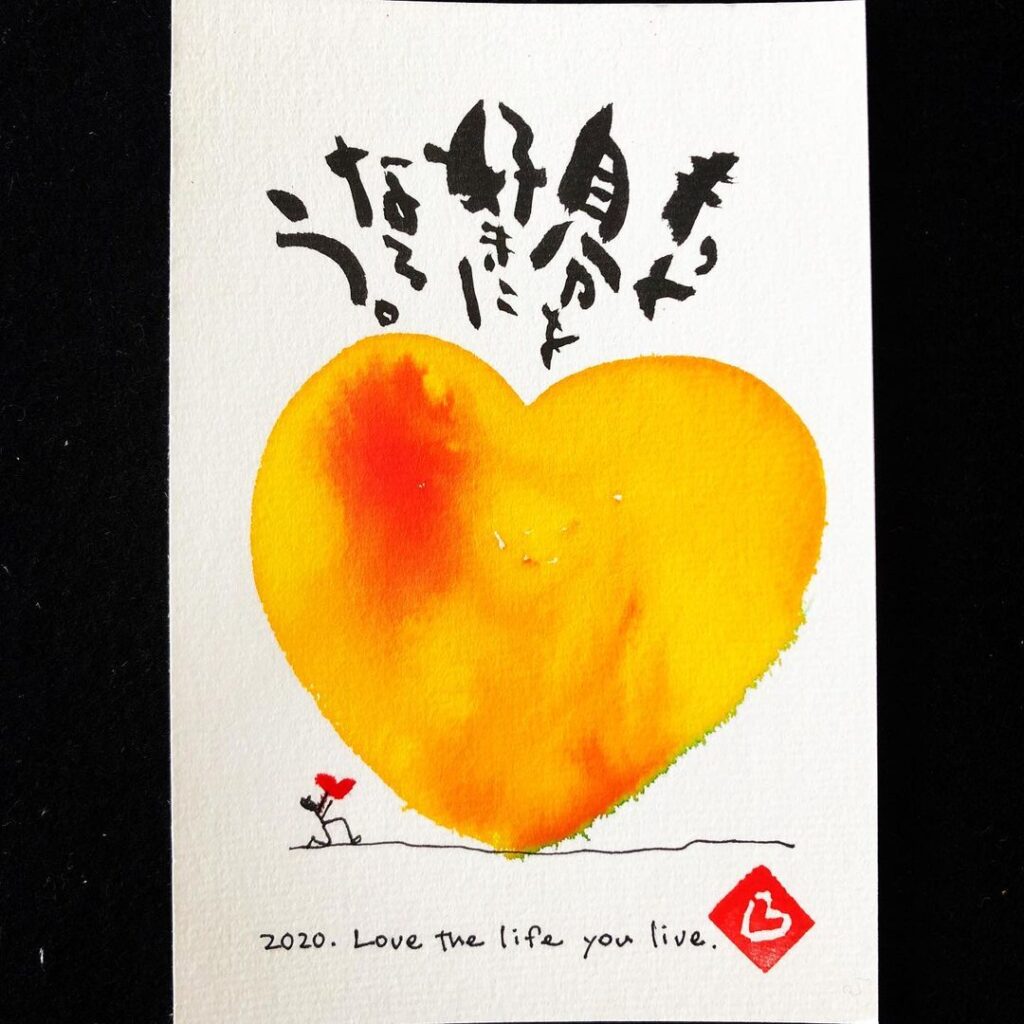 もっと
自分を
好きに
なろう。
2020. Love the life you live.